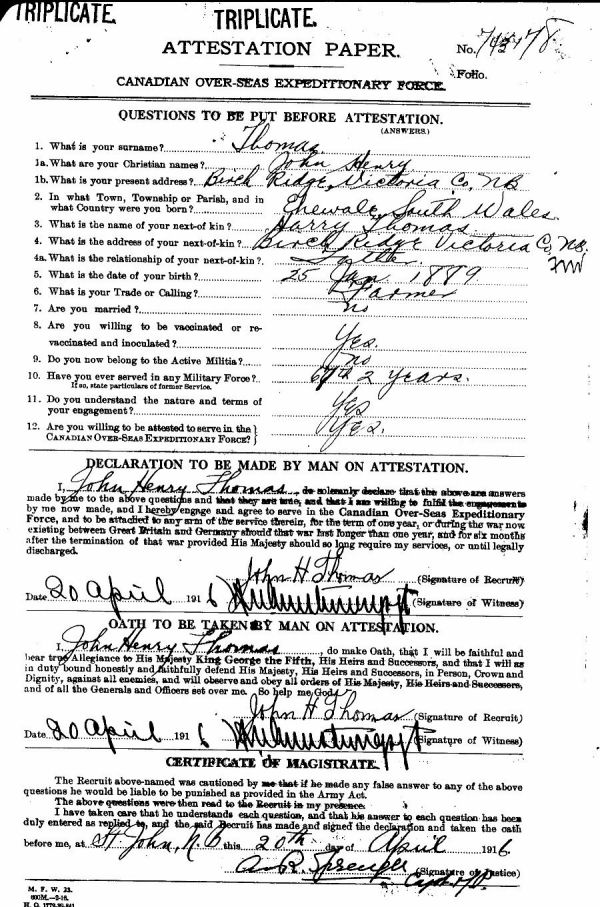 TRIPLICATE.
TRIPLICATE.
ATTESTATION PAPER.
No.
Folio.
CANADIAN OVER-SEAS EXPEDITIONARY FORCE.
QUESTIONS TO BE PUT BEFORE ATTESTATION.
(ANSWERS.)
1. What is your surname? Thomas
1a. What are your Christian names? John Henry
1b. What is your present address? Birch Ridge, Victoria Co, NB
2. In what Town, Township or Parish, and in
what Country were you born? South Wales
3. What is the name of your next-of kin? Harry Thomas
4. What is the address of your next-of-kin? Birch Ridge Victoria Co, NB.
4a. What is the relationship of your next-of-kin? Father
5. What is the date of your birth? 25 Jan 1889
6. What is your Trade or Calling? Farmer
7. Are you married? no
8. Are you willing to be vaccinated or re-
vaccinated and inoculated? Yes.
9. Do you now belong to the Active Militia? no
10. Have you ever served in any Military Force? 2 years.
If so, state particulars of former Service.
11. Do you understand the nature and terms of
your engagement? Yes
12. Are you willing to be attested to serve in the
CANADIAN OVER-SEAS EXPEDITIONARY FORCE? Yes.
DECLARATION TO BE MADE BY MAN ON ATTESTATION.
I, John Henry Thomas, do solemnly declare that the above are answers
made by me to the above questions and that they are true, and that I am willing to fulfil the engagements
by me now made, and I hereby engage and agree to serve in the Canadian Over-Seas Expeditionary
Force, and to be attached to any arm of the service therein, for the term of one year, or during the war now
existing between Great Britain and Germany should that war last longer than one year, and for six months
after the termination of that war provided His Majesty should so long require my services, or until legally
discharged.
John H Thomas (Signature of Recruit)
Date 20 April 1916 (Signature of Witness)
OATH TO BE TAKEN BY MAN ON ATTESTATION.
I, John Henry Thomas, do make Oath, that I will be faithful and
bear true Allegiance to His Majesty King George the Fifth, His Heirs and Successors, and that I will as
in duty bound honestly and faithfully defend His Majesty, His Heirs and Successors, in Person, Crown and
Dignity, against all enemies, and will observe and obey all orders of His Majesty, His Heirs and Successors,
and of all the Generals and Officers set over me. So help me God.
John H Thomas (Signature of Recruit)
Date 20 April 1916 (Signature of Witness)
CERTIFICATE OF MAGISTRATE.
The Recruit above-named was cautioned by me that if he made any false answer to any of the above
questions he would be liable to be punished as provided in the Army Act.
The above questions were then read to the Recruit in my presence.
I have taken care that he understands each question, and that his answer to each question has been
duly entered as replied to, and the said Recruit has made and signed the declaration and taken the oath
before me, at St John, N.B. this 20th day of April 1916
(Signature of Justice)
M. F. W. 23.